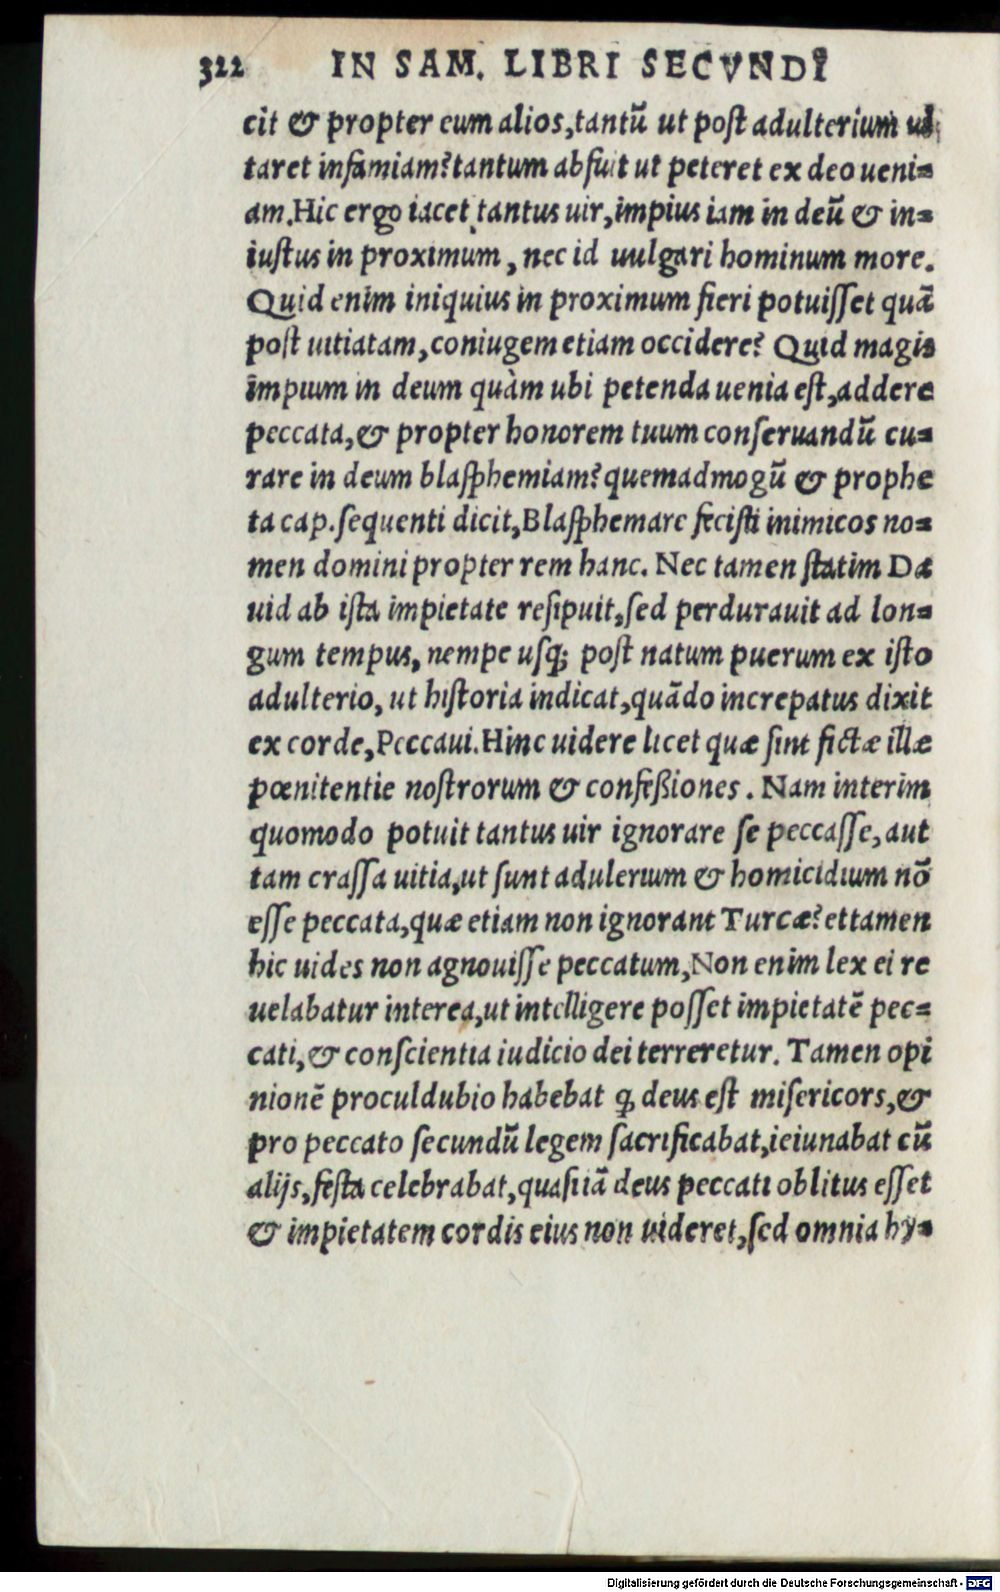 322 IN SAM. LIBRI SECVNDI
cit & propter eum alios,tantũ ut post adulterium ui
taret infamiam?tantum abfuit ut peteret ex deo ueni=
am.Hic ergo iacet tantus uir,impius iam in deũ & in=
iustus in proximum, nec id uulgari hominum more.
Quid enim iniquius in proximum fieri potuisset quã
post uitiatam,coniugem etiam occidere? Quid magis
impium in deum quàm ubi petenda uenia est,addere
peccata,& propter honorem tuum conseruandũ cu=
rare in deum blasphemiam?quemadmogũ & prophe
ta cap.sequenti dicit,Blasphemare fecisti inimicos no=
men domini propter rem hanc. Nec tamen statim Da
uid ab ista impietate resipuit,sed perdurauit ad lon=
gum tempus, nempe usq; post natum puerum ex isto
adulterio, ut historia indicat,quãdo increpatus dixit
ex corde,Peccaui.Hinc uidere licet quæ sint fictæ illæ
pœnitentie nostrorum & confeßiones. Nam interim
quomodo potuit tantus uir ignorare se peccasse, aut
tam crassa uitia,ut sunt adulerium & homicidium nõ
esse peccata,quæ etiam non ignorant Turcæ?ettamen
hic uides non agnouisse peccatum,Non enim lex ei re
uelabatur interea,ut intelligere posset impietatẽ pec=
cati,& conscientia iudicio dei terreretur. Tamen opi
nionẽ proculdubio habebat ꝙ deus est misericors,&
pro peccato secundũ legem sacrificabat,ieiunabat cũ
alijs,festa celebrabat,quasi iã deus peccati oblitus esset
& impietatem cordis eius non uideret,sed omnia hy=
Digitalisierung gefördert durch die Deutsche Forschungsgemeinschaft - DFG